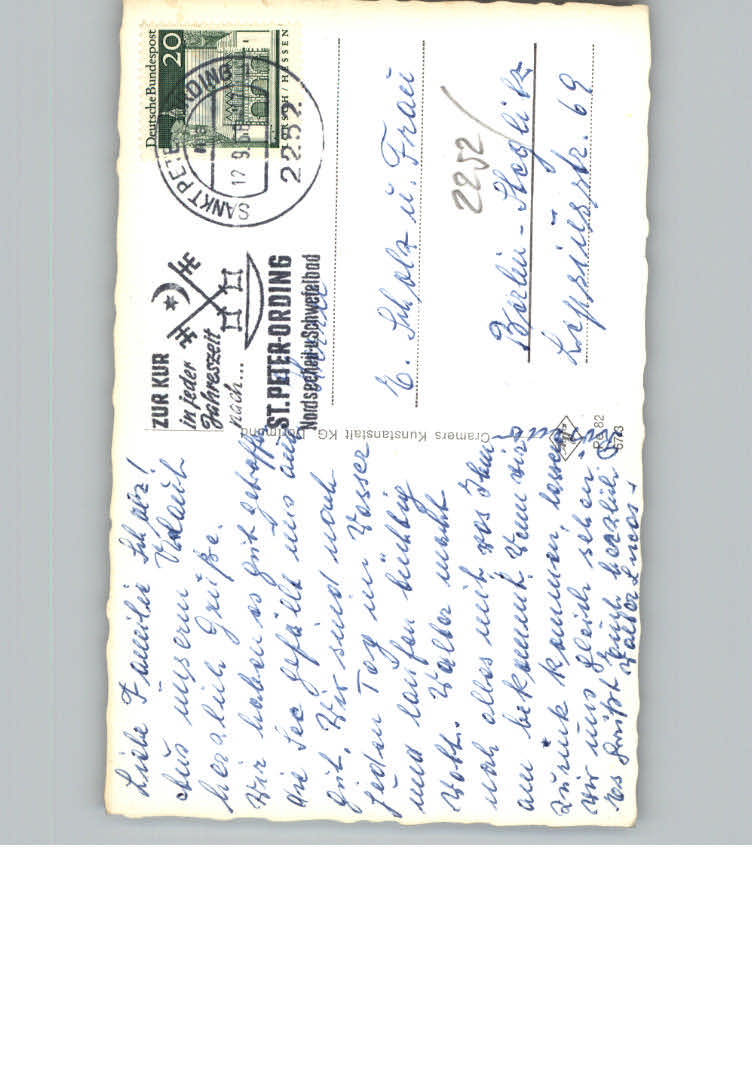 Liebe Familie Scholz!
Aus unserm Urlaub
herzlich Grüße.
Wir haben es gut getroffen
die See gefällt uns auch
gut. Wir sind noch
jeden Tag im Wasser
und laufen tüchtig
Watt. Walter macht
noch alles mit was Ihm
am bekommt. Wenn wir
zurück kommen, lassen
wir uns gleich sehen.
Es grüßt Euch herzlich
Walter
Deutsche Bundespost
20
LORSCH / HESSEN
SANKT PETER-ORDING
12.9.
2252
ZUR KUR
in jeder
Jahreszeit
nach...
ST. PETER-ORDING
Nordseeheil- u. Schwefelbad
Cramers Kunstanstalt KG, Dortmund
Pe 82
E. Scholz u. Frau
2252
Berlin-Steglitz
Lepsiusstr. 69